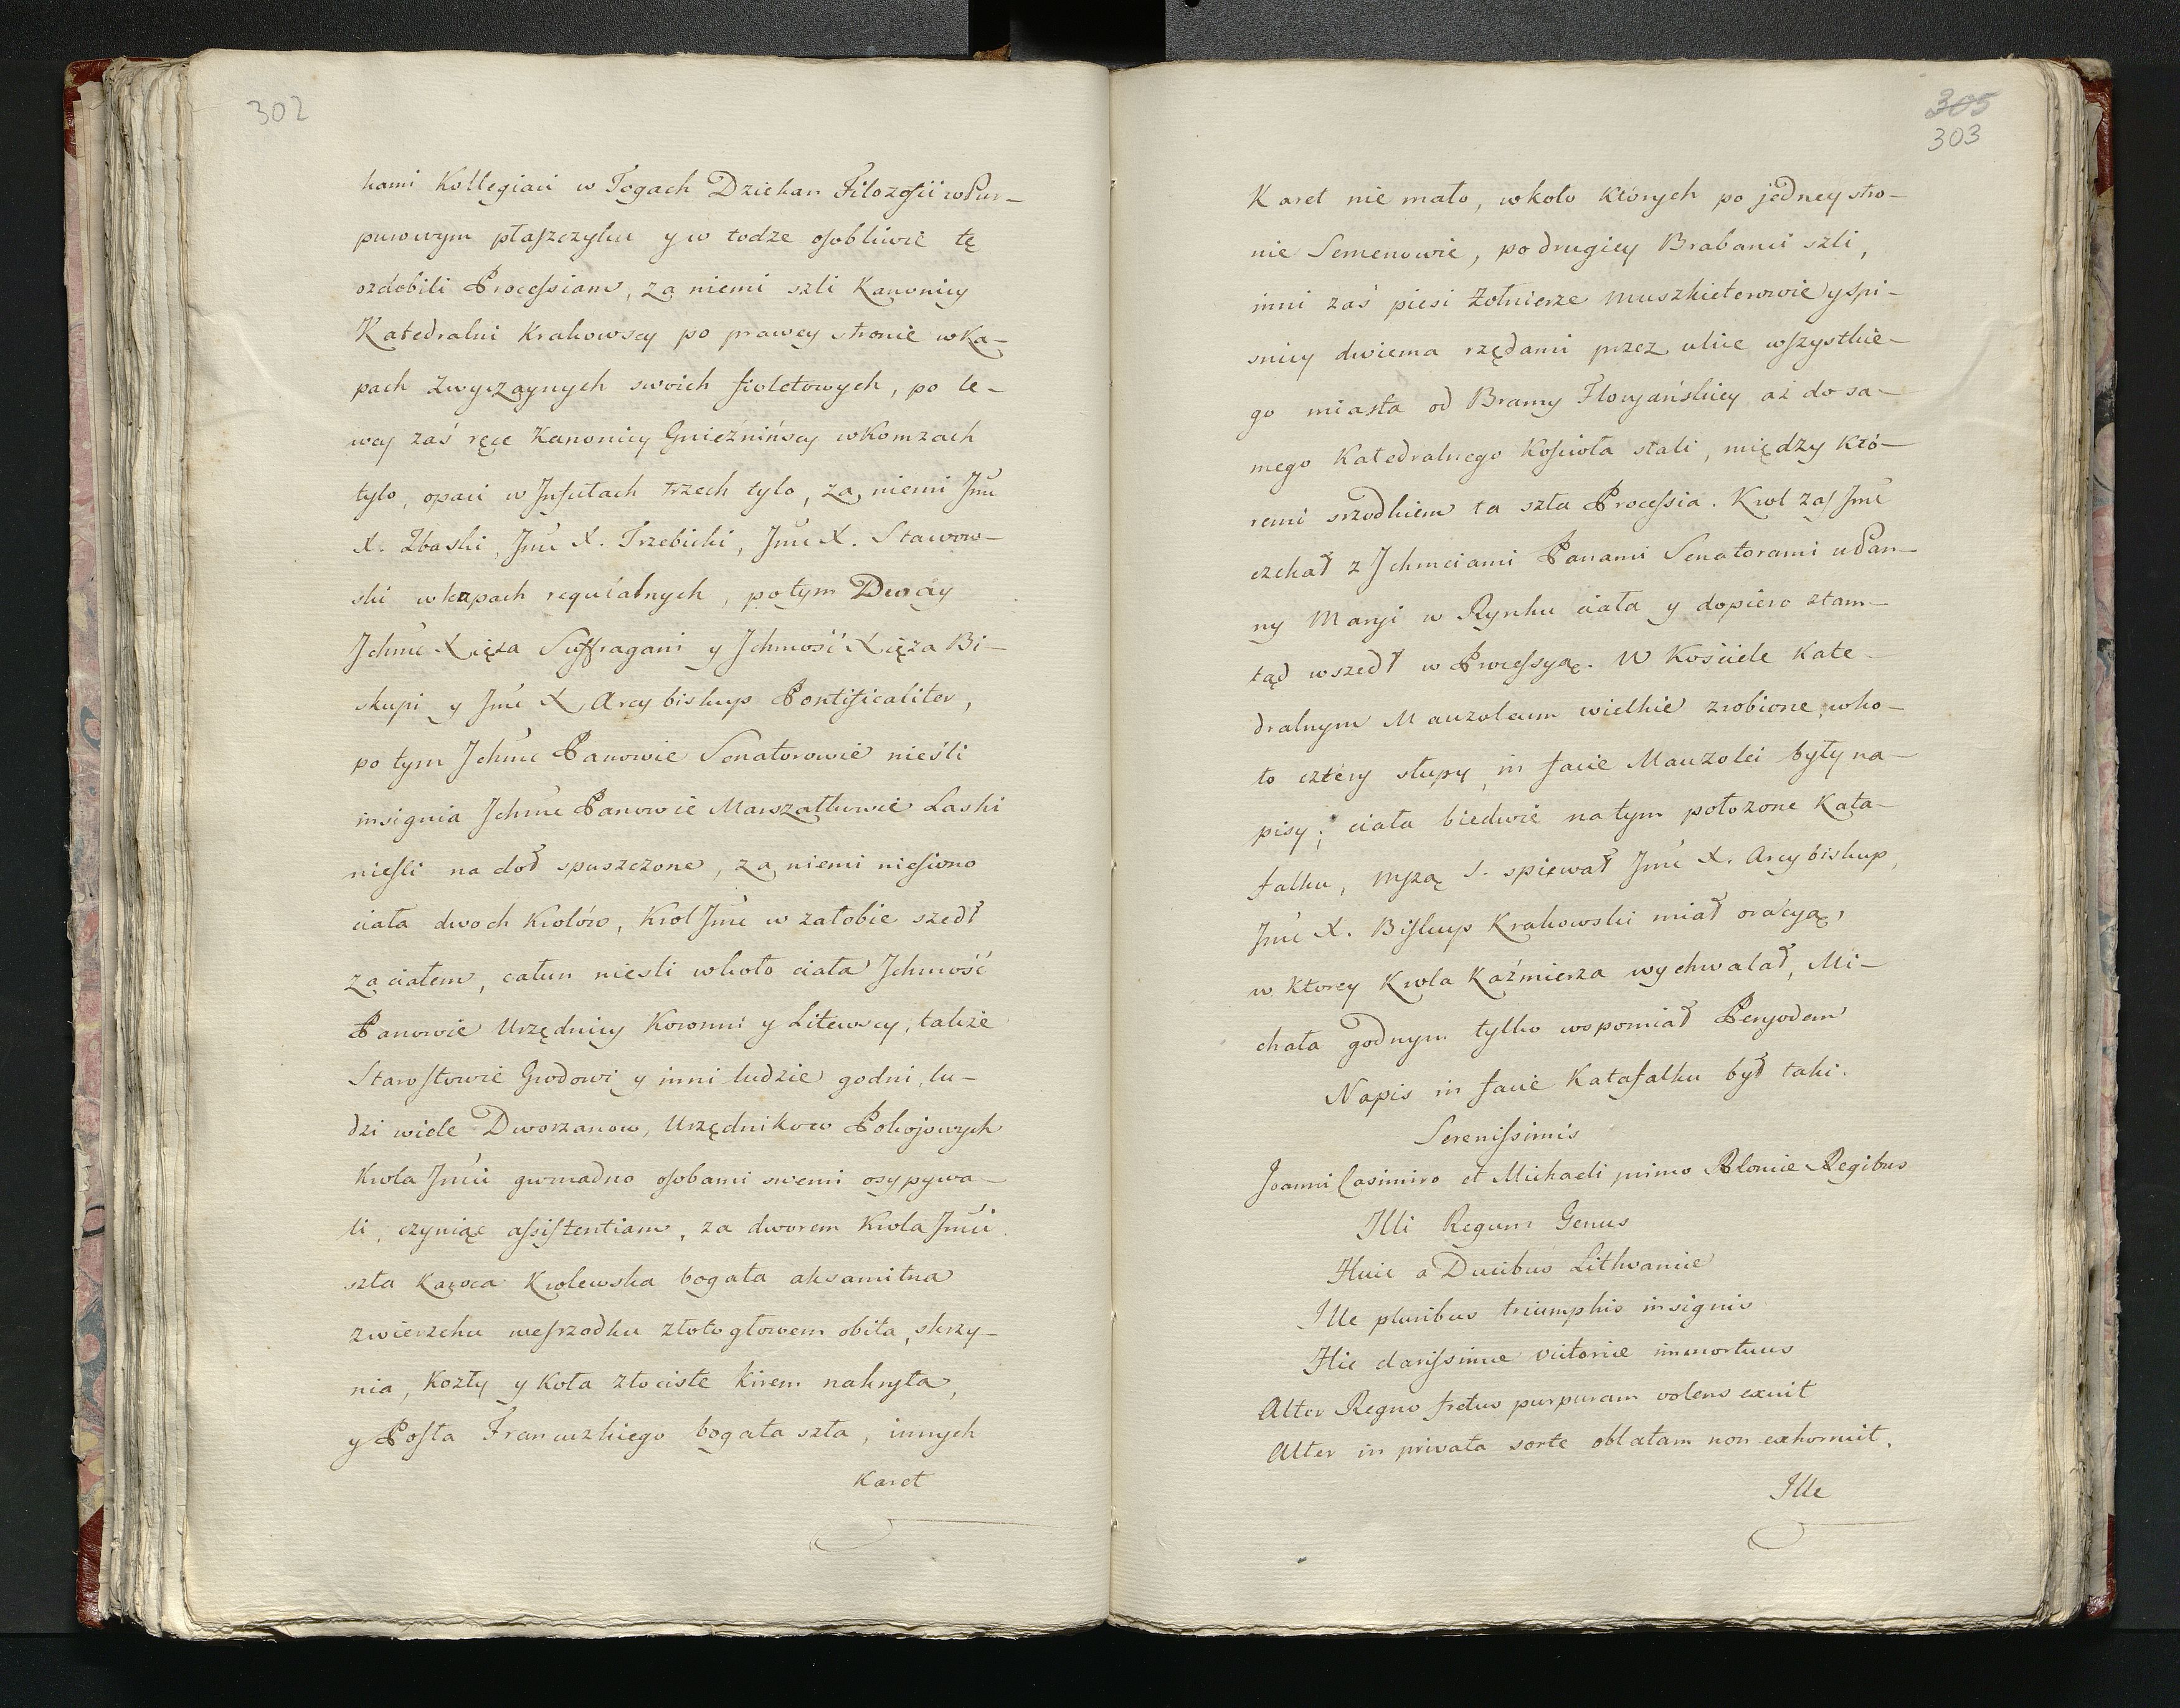 302
kami Kollegiaci w Togach Dziekan Filozofii w Pur-
purowym płaszczyku y w todze osobliwie tę
ozdobili Processiam, za niemi szli Kanonicy
Katedralni Krakowscy po prawey stronie w Ka-
pach zwyczaynych swoich fioletowych, po le-
wey zaś ręce Kanonicy Gnieźnińscy w Komzach
tylo, opaci w Infułach trzech tylo, za niemi Jmć
X. Zbaski, Jmć X. Trzebicki, Jmć X. Stawow-
ski w kapach regularnych, potym
Ichmć Xięża Suffragani y Ichmość Xięża Bi-
skupi y Jmć X. Arcybiskup Pontificaliter,
po tym Ichmć Panowie Senatorowie nieśli
insignia Ichmć Panowie Marszałkowie Laski
niesli na doł spuszczone, za niemi niesiono
ciała dwoch Krolów, Krol Jmć w załobie szedł
za ciałem, całun niesli wkoło ciała Ichmość
Panowie Urzędnicy Koronni y Litewscy, także
Starostowie Grodowi y inni ludzie godni, lu-
dzi wiele Dworzanow, Urzędnikow Pokojowych
Krola Jmci gromadno osobami swemi osypywa-
li, czyniąc assistentiam, za dworem Krola Jmci
szła Karoca Krolewska bogata aksamitna
zwierzchu wesrzodku złotogłowem obita, skrzy-
nia, Kozły y Koła złociste kirem nakryta,
y Posła Francuzkiego bogata szła, innych
Karet
305
303
Karet nie mało, wkoło ktorych po jedney stro-
nie Semenowie, po drugiey Brabanci szli,
inni zaś piesi Żołnierze muszkieterowie y spi-
snicy dwiema rzędami przez ulice wszystkie-
go miasta od Bramy Floryańskiey aż do sa-
mego Katedralnego Kościoła stali, między któ-
remi srzodkiem ta szła Processia. Krol zas Jmć
czekał z Ichmciami Panami Senatorami u Pan-
ny Maryi w Rynku ciała y dopiero ztam-
tąd wszedł w Processyą. W Kościele Kate-
dralnym Mauzoleum wielkie zrobione, wko-
ło cztery słupy, in facie Mauzolei były na-
pisy; ciała biedwie na tym położone Kata-
falku, Mszą S. spiewał Jmć X. Arcybiskup,
Jmć X. Biskup Krakowski miał oracyą,
w ktorey Krola Kaźmierza wychwalał, Mi-
chała godnym tylko wspomiał Peryodem
Napis in facie Katafalku był taki.
Serenissimis
Joanni Casimiro et Michaeli primo Poloniæ Regibus
Illi Regum Genus
Huic a Ducibus Lithvaniæ
Ille pluribus triumphis insignis
Hic clarissimæ victoriæ immortuus
Alter Regno fretus purpuram volens exuit
Alter in privata sorte oblatam non exhorruit.
Ille